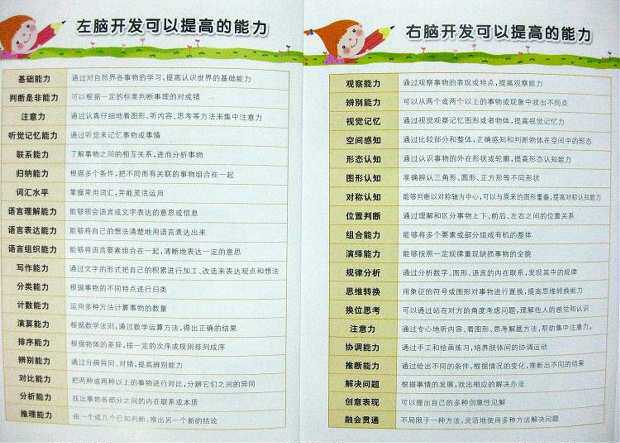 左脑开发可以提高的能力
基础能力 通过对自然界各事物的学习,提高认识世界的基础能力
判断是非能力 可以根据一定的标准判断事理的对或错
注意力 通过认真仔细地看图形、听内容、思考等方法来集中注意力
听觉记忆能力 通过听觉来记忆事物或事情
联系能力 了解事物之间的相互关系,进而分析事物
归纳能力 根据多个条件,把不同而有关联的事物组合在一起
词汇水平 掌握常用词汇,并能灵活运用
语言理解能力 能够领会语言或文字表达的意思或信息
语言表达能力 能够将自己的想法清楚地用语言表达出来
语言组织能力 能够将语言要素组合在一起,清晰地表达一定的意思
写作能力 通过文字的形式把自己的积累进行加工、改造来表达观点和想法
分类能力 根据事物的不同特点进行归类
计数能力 运用多种方法计算事物的数量
演算能力 根据数学法则,通过数学运算方法,得出正确的结果
排序能力 根据物体的差异,按一定的次序或规则排列成序
辨别能力 通过分辨异同、对错,提高辨别能力
对比能力 把两种或两种以上的事物进行对比,分辨它们之间的异同
分析能力 找出事物各部分之间的内在联系或本质
推理能力 由一个或几个已知判断,推出另一个新的结论
右脑开发可以提高的能力
观察能力 通过观察事物的表现或特点,提高观察能力
辨别能力 可以从两个或两个以上的事物或现象中找出不同点
视觉记忆 通过视觉观察记忆图形或者物体,提高视觉记忆力
空间感知 通过比较部分和整体,正确感知和判断物体在空间中的形态
形态认知 通过认识事物的外在形状或轮廓,提高形态认知能力
图形认知 准确辨认三角形、圆形、正方形等不同形状
对称认知 能够判断出以对称轴为中心,可以与原来的图形重叠,提高对称认知能力
位置判断 通过理解和区分事物上下、前后、左右之间的位置关系
组合能力 能够将多个要素或部分组成有机的整体
演绎能力 能够按照一定规律重现缺损事物的全貌
规律分析 通过分析数字、图形、语言的内在联系,发现其中的规律
思维转换 用象征的符号或图形对事物进行置换,提高思维转换能力
换位思考 可以通过站在对方的角度考虑问题,理解他人的感觉和认识
注意力 通过专心地听内容、看图形、思考解题方法,帮助集中注意力。
协调能力 通过手工和绘画练习,培养肢体间的协调运动
推断能力 通过给出不同的条件,根据情况的变化,推断出不同的结果
解决问题 根据事情的发展,找出相应的解决办法
创意表现 可以提出自己的多种创意性见解
融会贯通 不局限于一种方法,灵活地使用多种方法解决问题